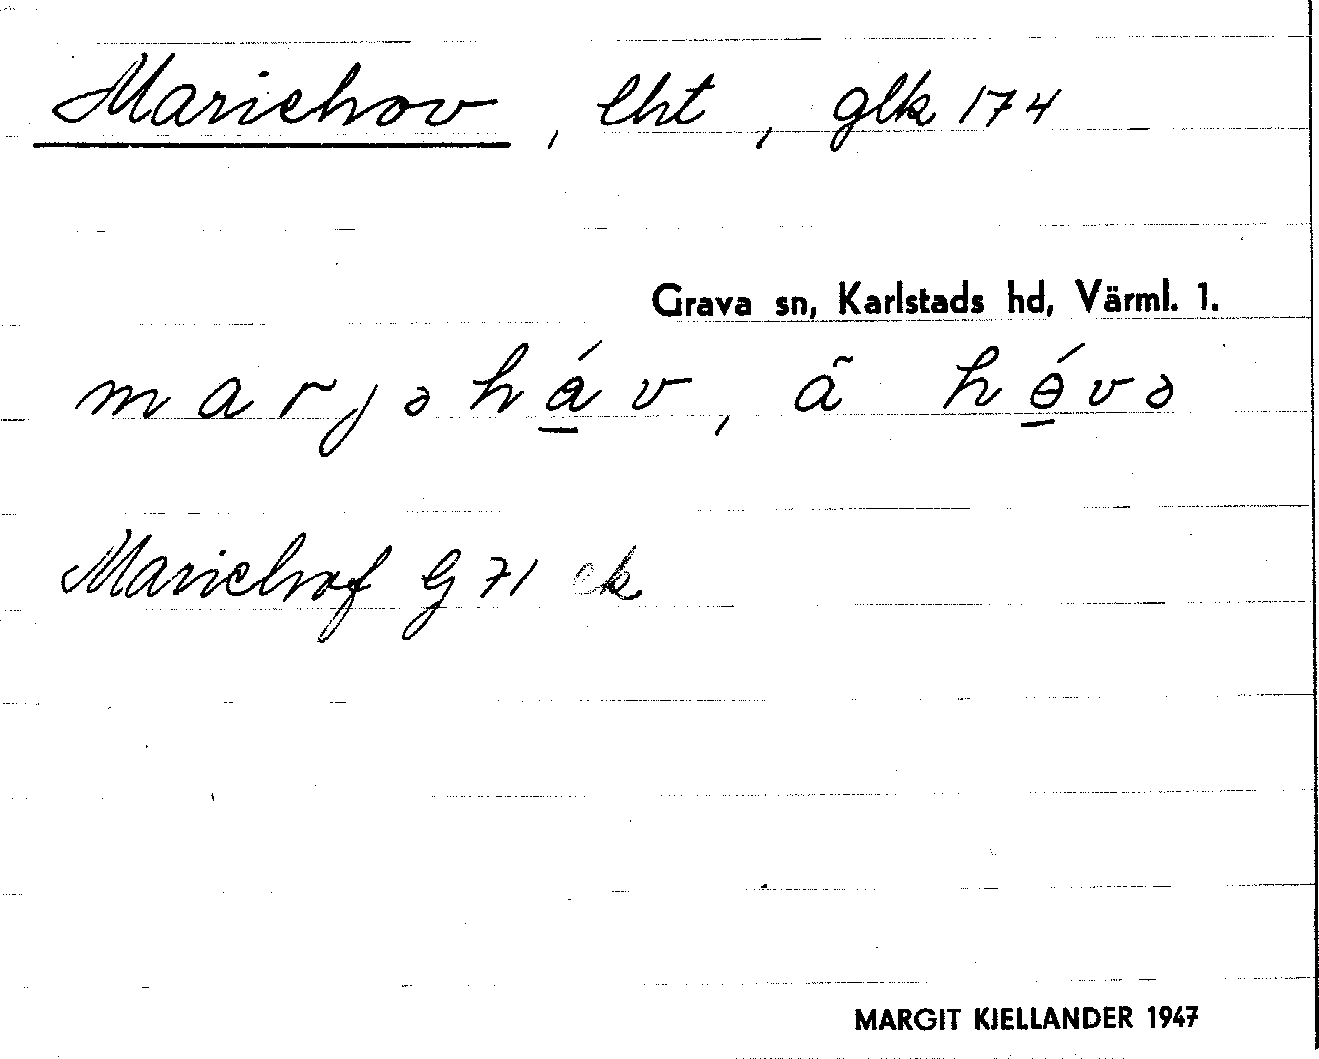 Mariehov, lht, glk 174
Grava sn, Karlstads hd, Värml. 1.
marjəhá̱v, å̃ hɵ̱́və
Mariehof G 71 ek
MARGIT KJELLANDER 1947